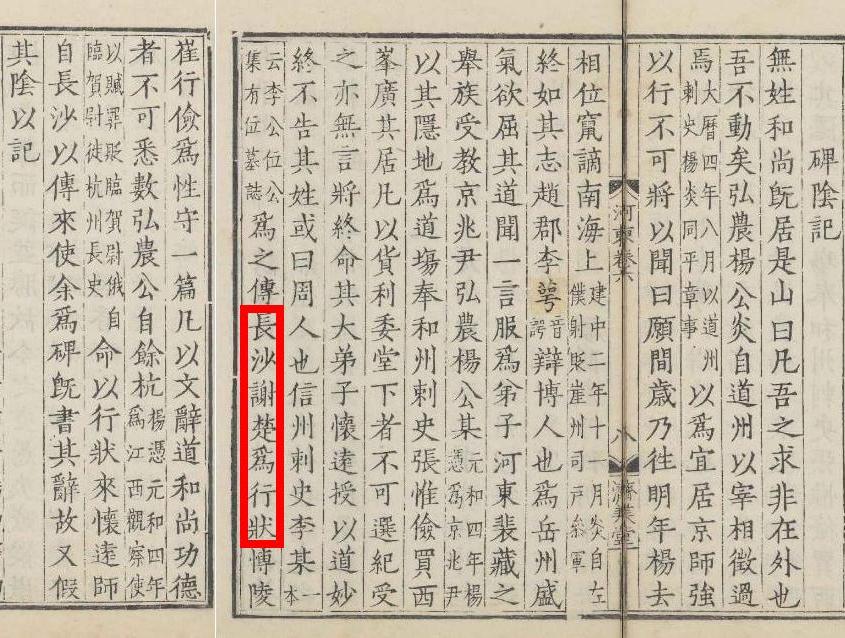 碑陰記
無姓和尚旣居是山曰凡吾之求非在外也
吾不動矣弘農楊公炎自道州以宰相徵過
焉大曆四年八月以道州刺史楊炎同平章事以爲宜居京師強
以行不可將以聞曰願間歲乃徃明年楊去
河東卷六 八 濟美堂
相位竄謫南海上建中二年十月炎自左僕射貶崖州司戶叅軍
終如其志趙郡李萼音諤辯博人也爲岳州盛
氣欲屈其道聞一言服爲弟子河東裴藏之
舉族受教京兆尹弘農楊公某元和四年楊憑爲京兆尹
以其隱地爲道塲奉和州刺史張惟儉買西
峯廣其居凡以貨利委堂下者不可選紀受
之亦無言將終命其大弟子懷遠授以道妙
終不告其姓或曰周人也信州刺史李某一本
云李公位公集有位墓誌爲之傳長沙謝楚爲行狀博陵
崔行儉爲性守一篇凡以文辭道和尚功德
者不可悉數弘農公自餘杭楊憑元和四年爲江西觀察使
以贓罪貶臨賀尉俄自臨賀尉徙杭州長史命以行狀來懷遠師
自長沙以傳來使余爲碑旣書其辭故又假
其陰以記